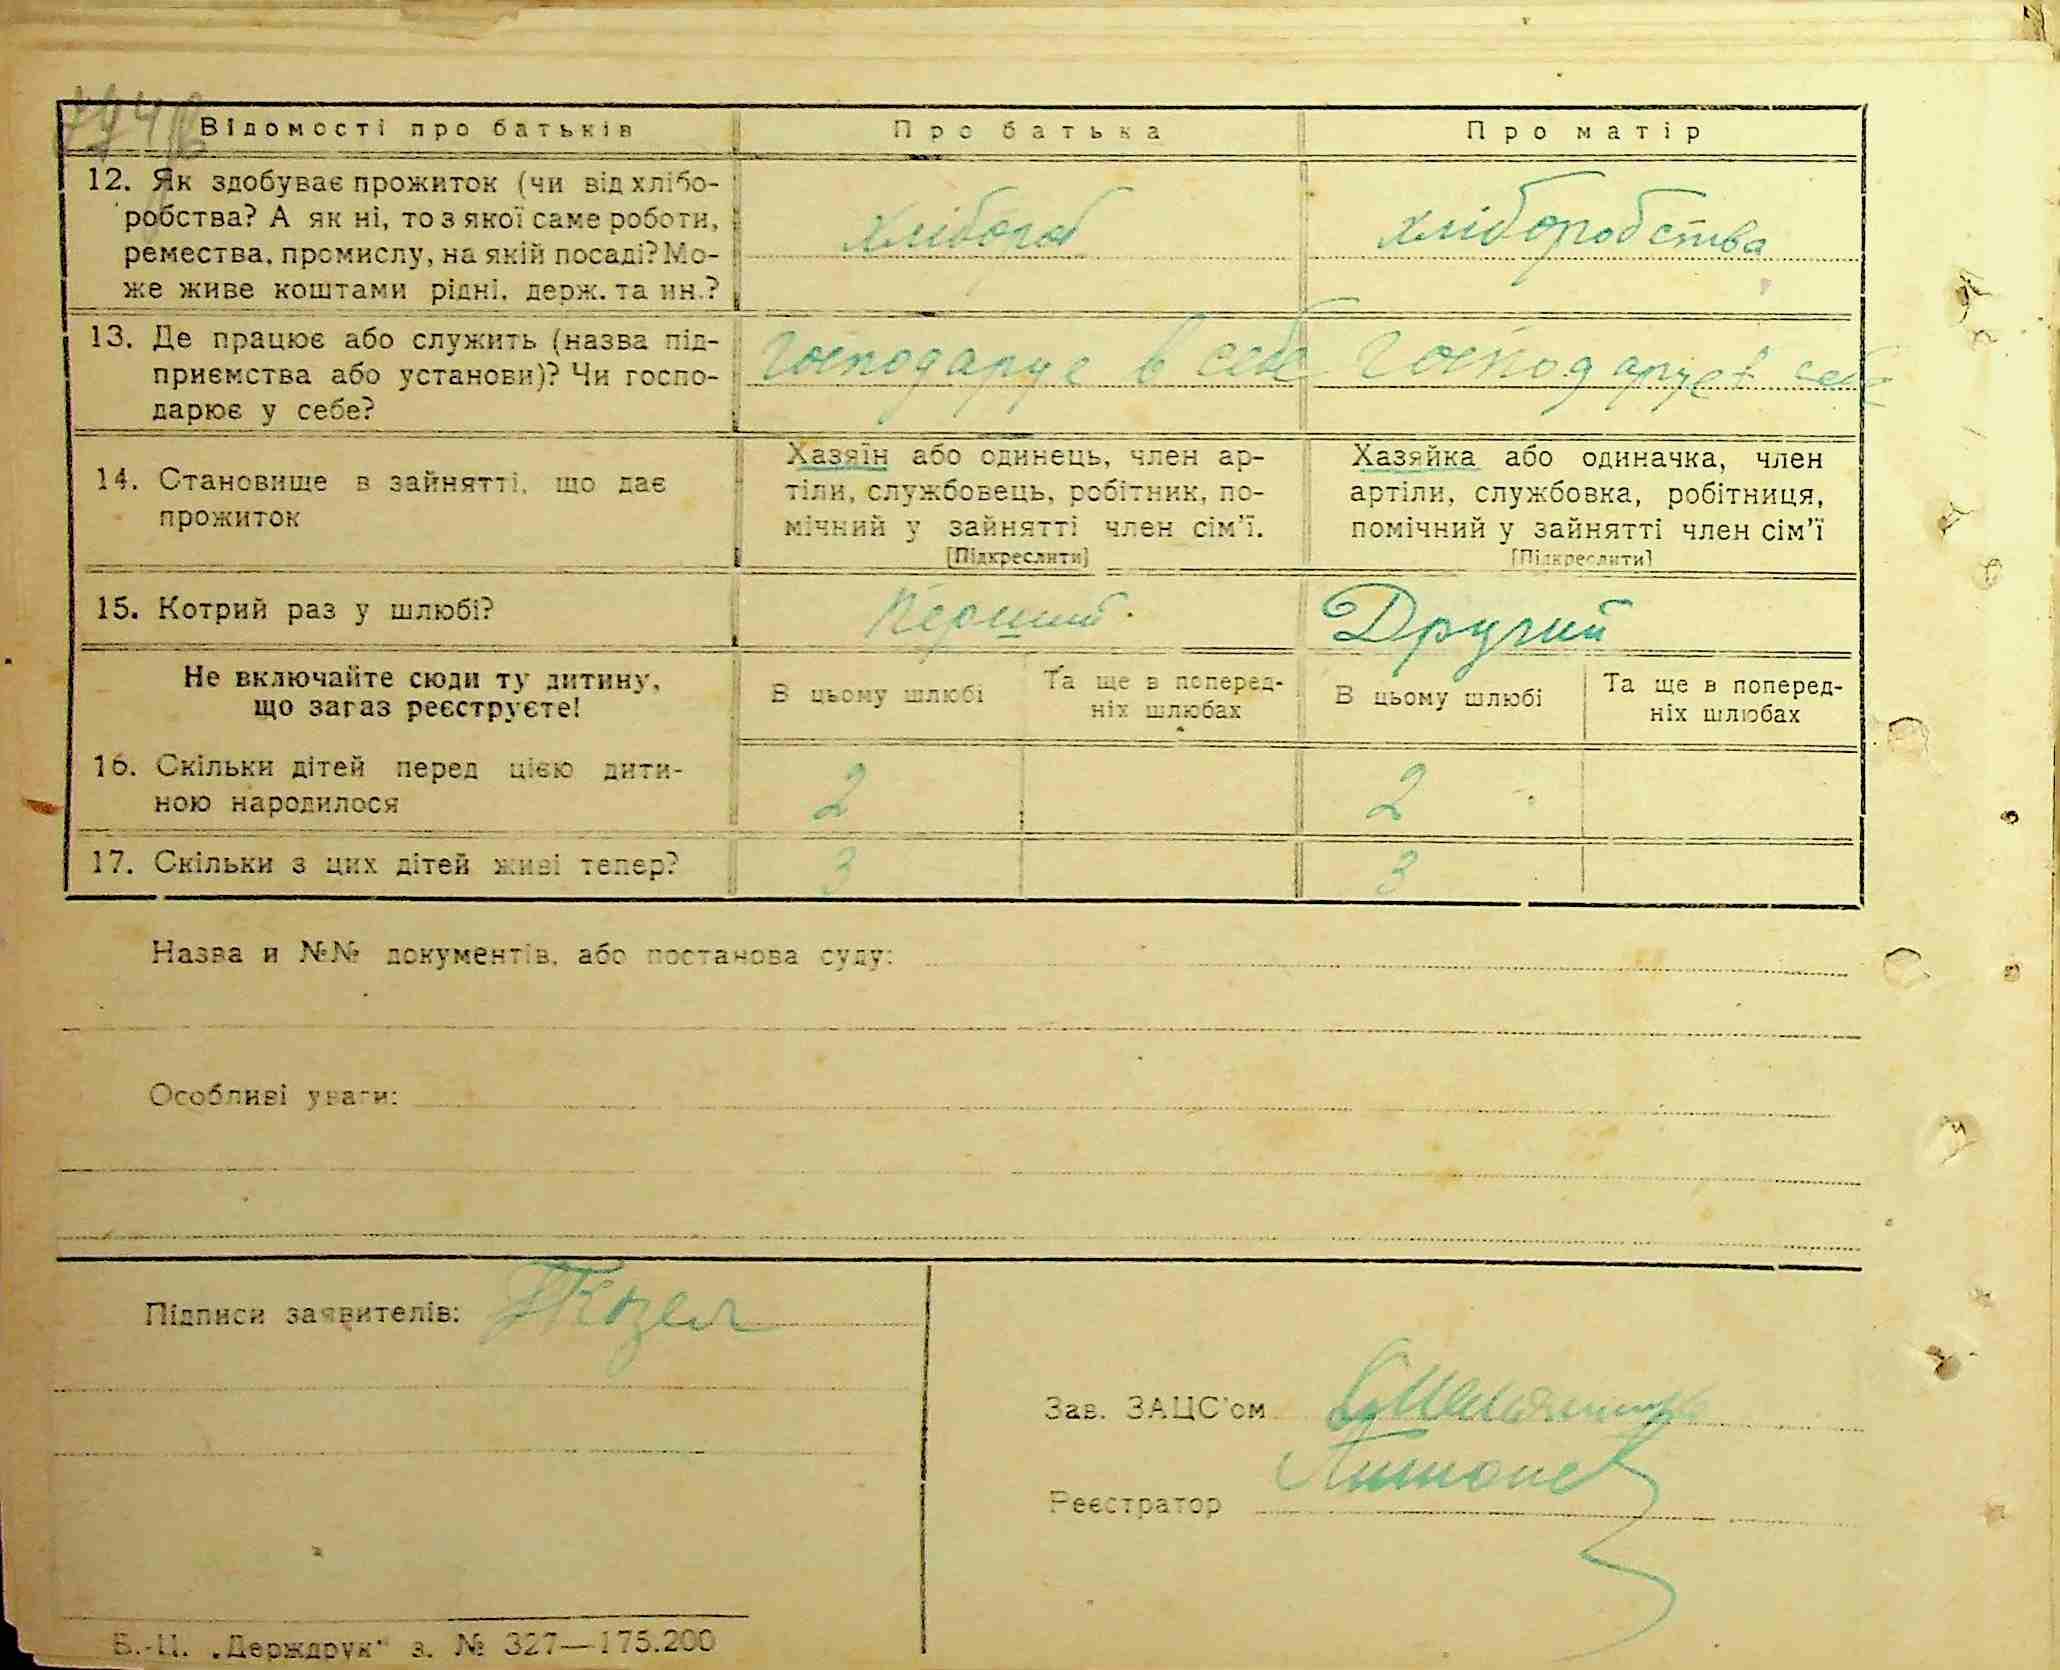 Відомості про батьків
Про батька
Про матір
12. Як здобуває прожиток (чи від хлібо-
робства? А як ні, то з якої саме роботи,
ремества, промислу, на якій посаді? Мо-
же живе коштами рідні, держ. та ин.?
хлібороб
хліборобства
13. Де працює або служить (назва під-
приємства або установи)? Чи госпо-
дарює у себе?
Господарує в себе
Господарує в себе
14. Становище в зайнятті, що дає
прожиток
Хазяїн або одинець, член ар-
тіли, службовець, робітник, по-
мічний у зайнятті член сім'ї.
[Підкреслити]
Хазяйка або одиначка, член
артіли, службовка, робітниця,
помічний у зайнятті член сім'ї
[Підкреслити]
15. Котрий раз у шлюбі?
Перший
Другий
Не включайте сюди ту дитину,
що зараз реєструєте!
В цьому шлюбі
Та ще в поперед-
ніх шлюбах
В цьому шлюбі
Та ще в поперед-
ніх шлюбах
16. Скільки дітей перед цією дити-
ною народилося
2
2
17. Скільки з цих дітей живі тепер?
3
3
Назва и №№ документів, або постанова суду:
Особливі уваги:
Підписи заявителів: Козел
Зав. ЗАЦС'ом
Реєстратор
Б.-Ц. „Держдрук" з. № 327—175.200